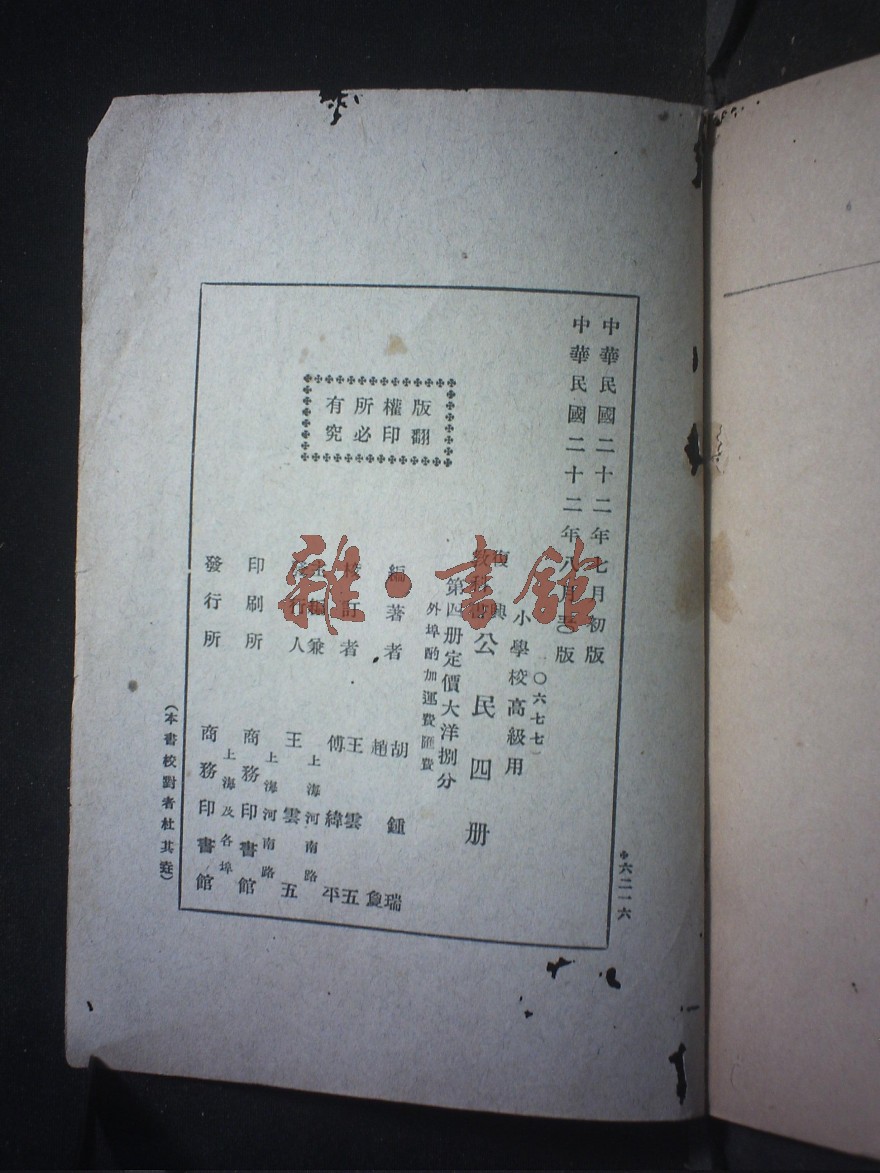 中華民國二十二年七月初版
中華民國二十二年八月五〇版
（〇六七七）
小學校高級用
復興
教科書
公民四册
第四册定價大洋捌分
外埠酌加運費匯費
版權所有
翻印必究
編著者
胡鍾瑞
趙
校訂者
王雲五
傅緯平
主編兼
發行人
上海河南路
王雲五
印刷所
上海河南路
商務印書館
發行所
上海及各埠
商務印書館
（本書校對者杜其垚）
六二一六
雜·書館